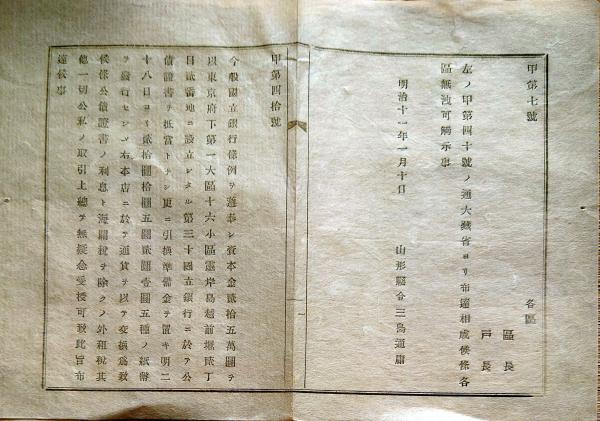 甲第七號
各區
區長
戸長
左ノ甲第四十號ノ通大藏省ヨリ布達相成候條各
區無洩可觸示事
明治十一年一月十日
山形縣令三島通庸
甲第四拾號
今般國立銀行條例ヲ遵奉シ資本金貳拾五萬圓ヲ
以東京府下第一大區十六小區靈岸島越前堀貳丁
目貳番地ニ設立シタル第三十國立銀行ニ於テ公
債證書ヲ抵當トナシ更ニ引換準備金ヲ置キ明二
十八日ヨリ貳拾圓拾圓五圓貳圓壹圓五種ノ紙幣
ヲ發行セシメ右本店ニ於テ通貨ヲ以テ交換爲致
候條公債證書ノ利息ト海關稅ヲ除クノ外租稅其
他一切公私ノ取引上總テ無疑念受授可致此旨布
達候事